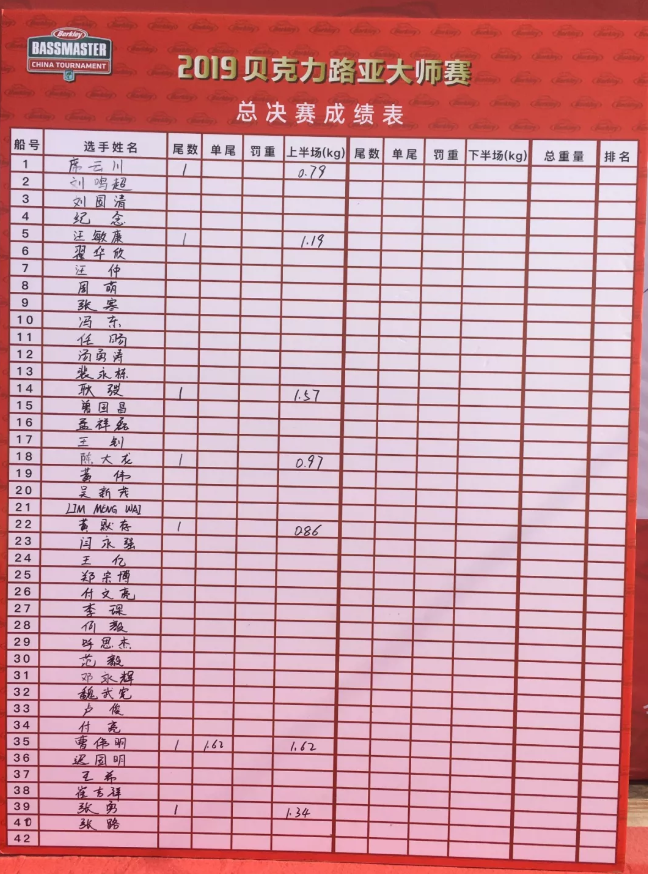 Berkley
BASSMASTER
CHINA TOURNAMENT
2019贝克力路亚大师赛
总决赛成绩表
船号 选手姓名 尾数 单尾 罚重 上半场(kg) 尾数 单尾 罚重 下半场(kg) 总重量 排名
1 席云川 1 0.79
2 刘鸣超
3 刘国清
4 纪念
5 汪敏康 1 1.19
6 翟华欣
7 汪仲
8 周萌
9 张寒
10 冯东
11 任旸
12 汤勇涛
13 裴永栋
14 耿强 1 1.57
15 曾国昌
16 孟祥磊
17 王钊
18 陈大龙 1 0.97
19 黄伟
20 吴新茂
21 LIM MENG WAI
22 黄耿存 1 0.86
23 闫永强
24 王亿
25 郑宗博
26 付文亮
27 李琛
28 何毅
29 叶思杰
30 范毅
31 邓永辉
32 魏武宪
33 卢俊
34 付亮
35 曹伟明 1 1.62 1.62
36 迟国明
37 王希
38 崔吉祥
39 张勇 1 1.34
40 张路
42